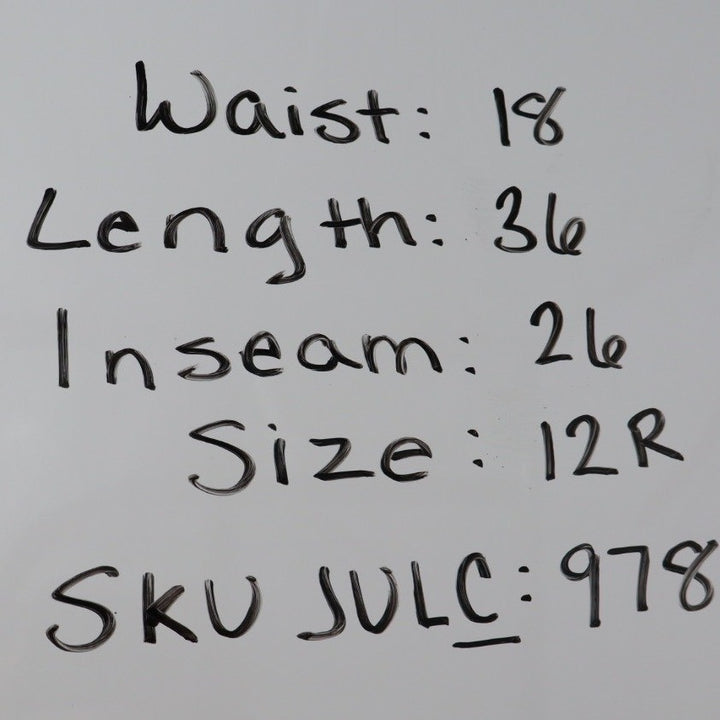 Waist: 18
Length: 36
Inseam: 26
Size: 12R
SKU JULC: 978